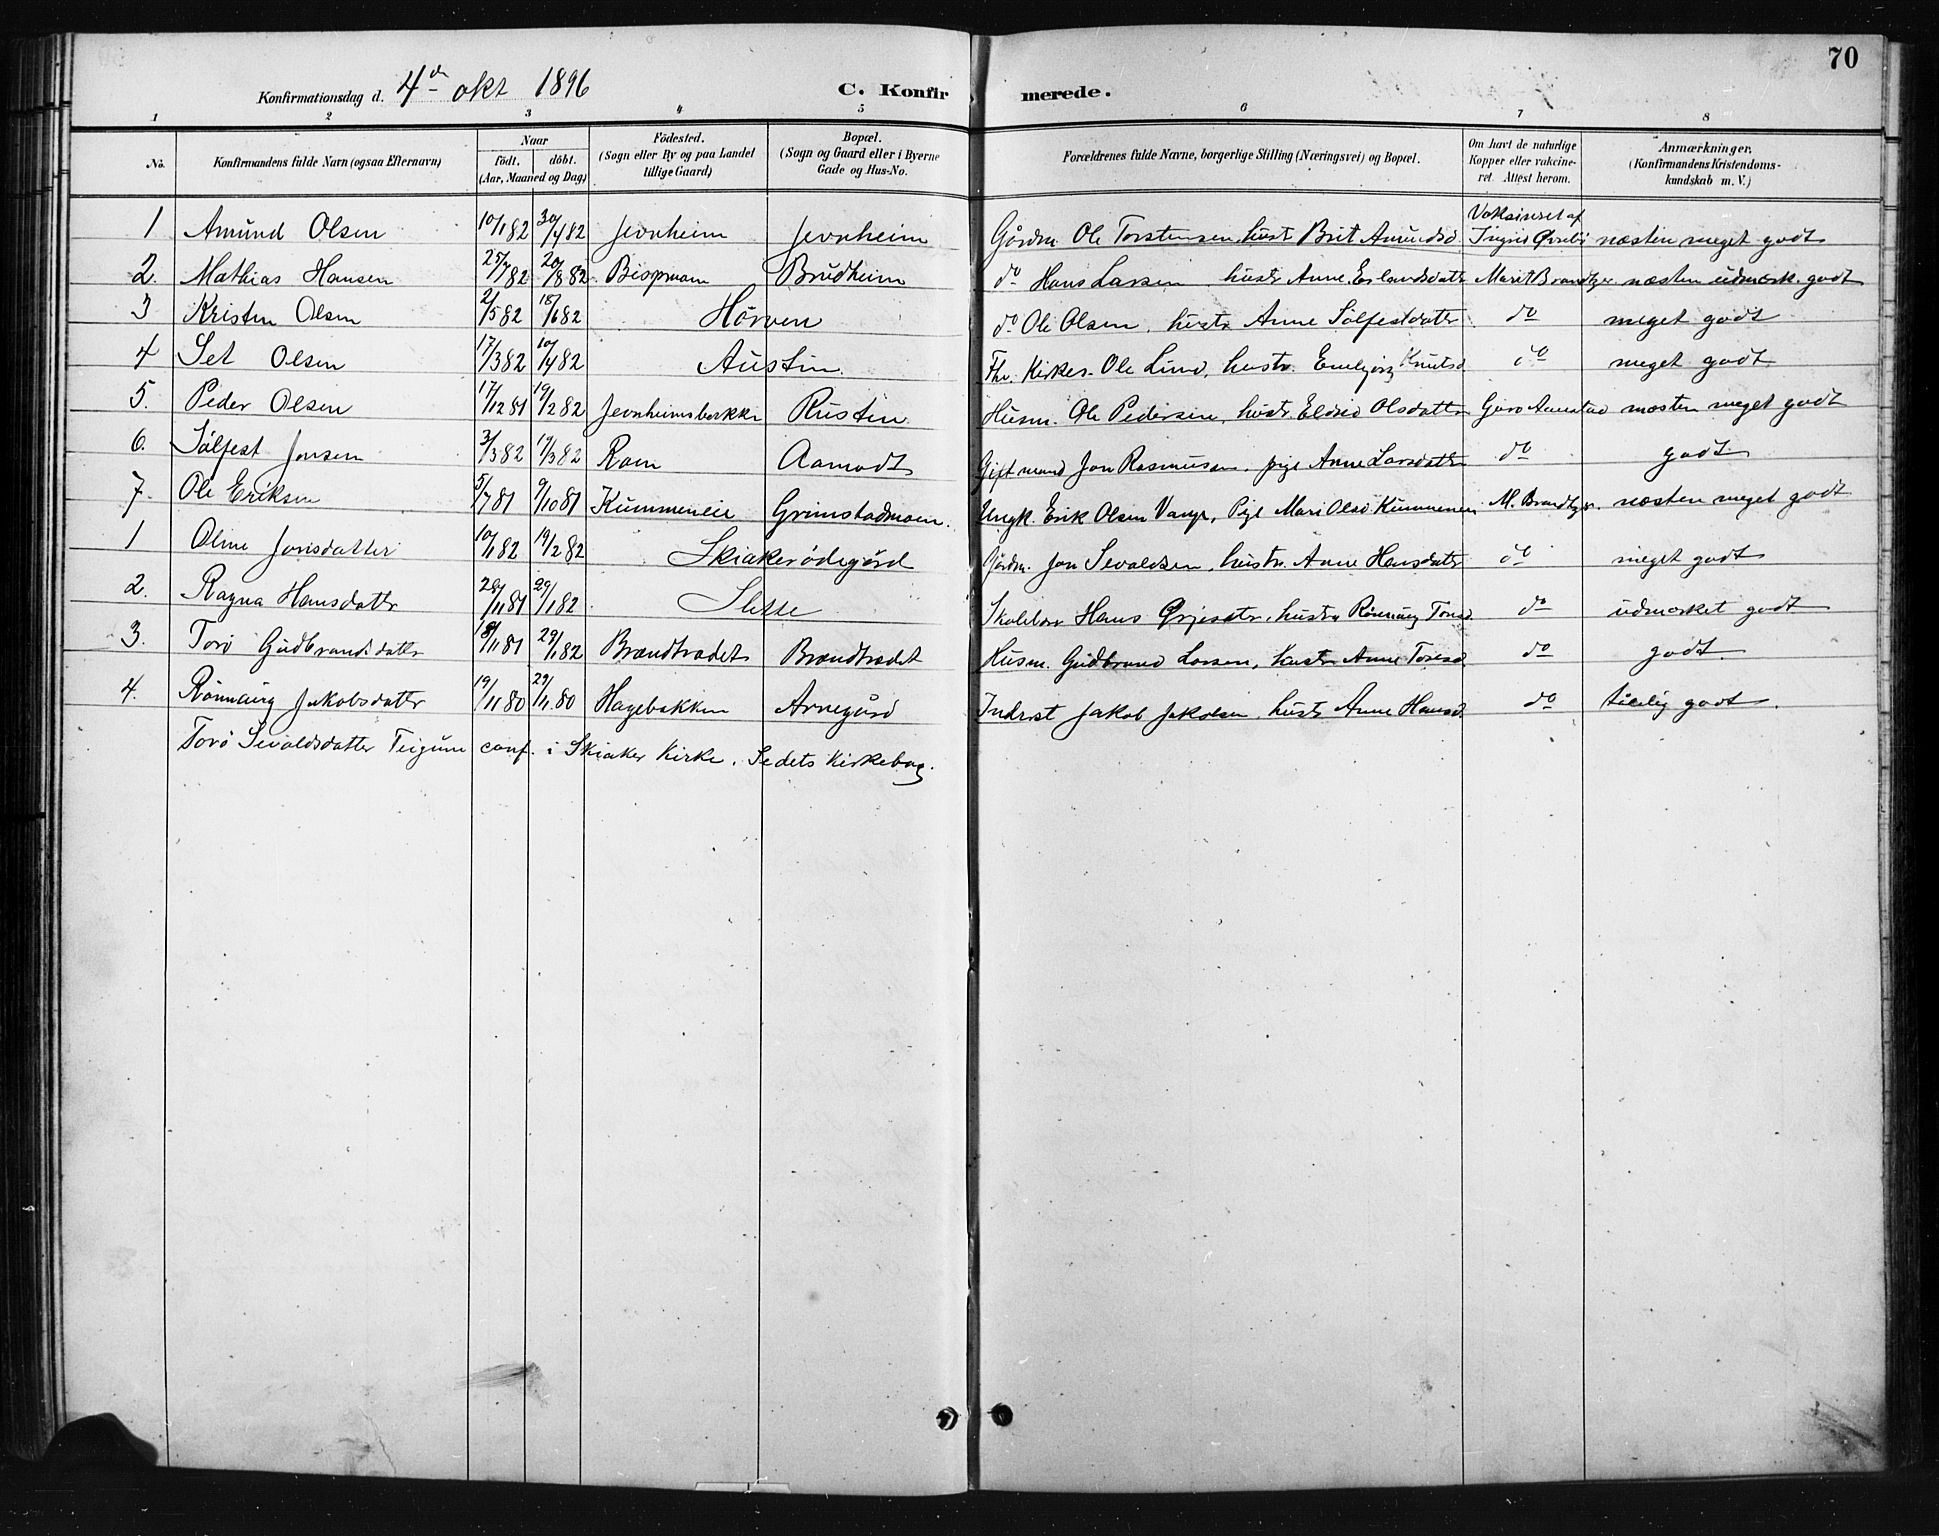 70
Konfirmationsdag d. 4de okt 1896 C. Konfirmerede.
1 2 3 4 5 6 7 8
No. Konfirmandens fulde Navn (ogsaa Efternavn) Naar født. døbt. (Aar, Maaned og Dag) Fødested. (Sogn eller By og paa Landet tillige Gaard) Bopæl. (Sogn og Gaard eller i Byerne Gade og Hus-No. Forældrenes fulde Navne, borgerlige Stilling (Næringsvei) og Bopæl. Om havt de naturlige Kopper eller vakcineret. Attest herom. Anmærkninger, (Konfirmandens Kristendomskundskab m. V.)
1 Amund Olsen 10/1 82 30/4 82 Jevnheim Jevnheim Gårdm. Ole Torstensen, hustr Brit Amundsd. Vaksineret af Ingrid Øvrebø næsten meget godt
2. Mathias Hansen 25/7 82 20/8 82. Bispmoen Brudheim do Hans Larsen, hustr Anne Erlandsdatter Marit Brandtzr. næsten udmærk. godt
3 Kristen Olsen 2/5 82 18/6 82 Hørven do Ole Olsen, hustr Anne Sølfestdatter do meget godt
4 Set Olsen 17/3 82 10/4 82 Austin. Fhv. Kirkes. Ole Lund, hustr. Embjørg Knutsd do meget godt
5. Peder Olsen 17/12 81 19/2 82 Jevnheimsbakke Rustin Husm. Ole Pedersen, hustr Eldrid Olsdatter Guro Aanstad næsten meget godt
6. Sølfest Jonsen 3/3 82 19/3 82 Ram Aamodt Gift mand Jon Rasmussen, pige Anne Larsdatter do godt.
7. Ole Eriksen 5/7 81 9/10 81 Kummeneie Grimstadmoen. Ungk. Erik Olsen Vange, Pige Mari Olsd Kummenen M. Brandtzr. næsten meget godt
1 Oline Jonsdatter 10/1 82 19/2 82 Skiakerødegård Gårdm. Jon Sevaldsen, hustr. Anne Hansdatter do meget godt
2. Ragna Hansdatter 28/11 81 29/1 82 Slette Skolelær Hans Ørjesætr, hustru Rønnaug Toresd. do udmærket godt
3. Torø Gudbrandsdatter 18/11 81 29/1 82 Brændtrødet Brændtrødet Husm. Gudbrand Larsen, hustr Anne Toresd. do godt.
4. Rønnaug Jakobsdatter 19/11 80 29/11 80 Hagebakken Arnegård Inderst Jakob Jakobsen, hustr Anne Hansd. do tålelig godt.
Torø Sevaldsdatter Teigum conf. i Skiaker Kirke. Se dets Kirkebog.